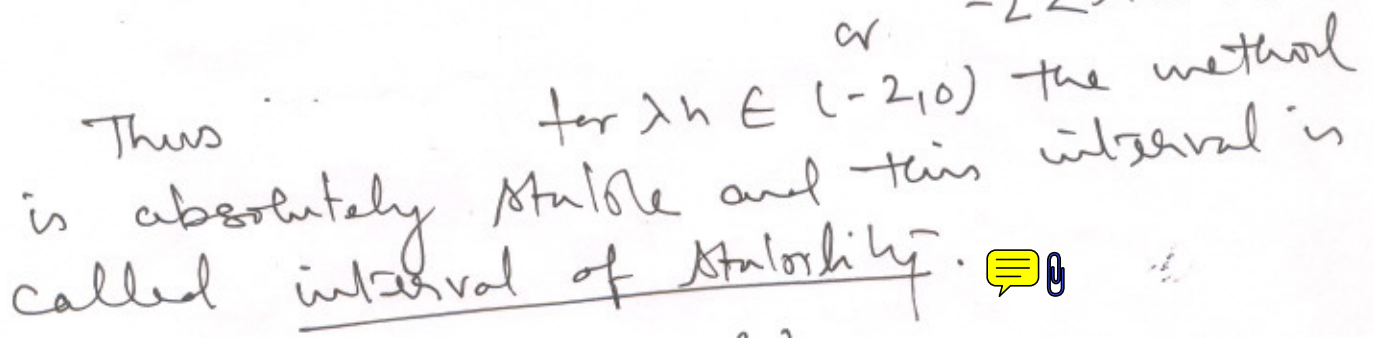 or
Thus for λh ∈ (-2,0) the method
is absolutely stable and this interval is
called interval of stability.